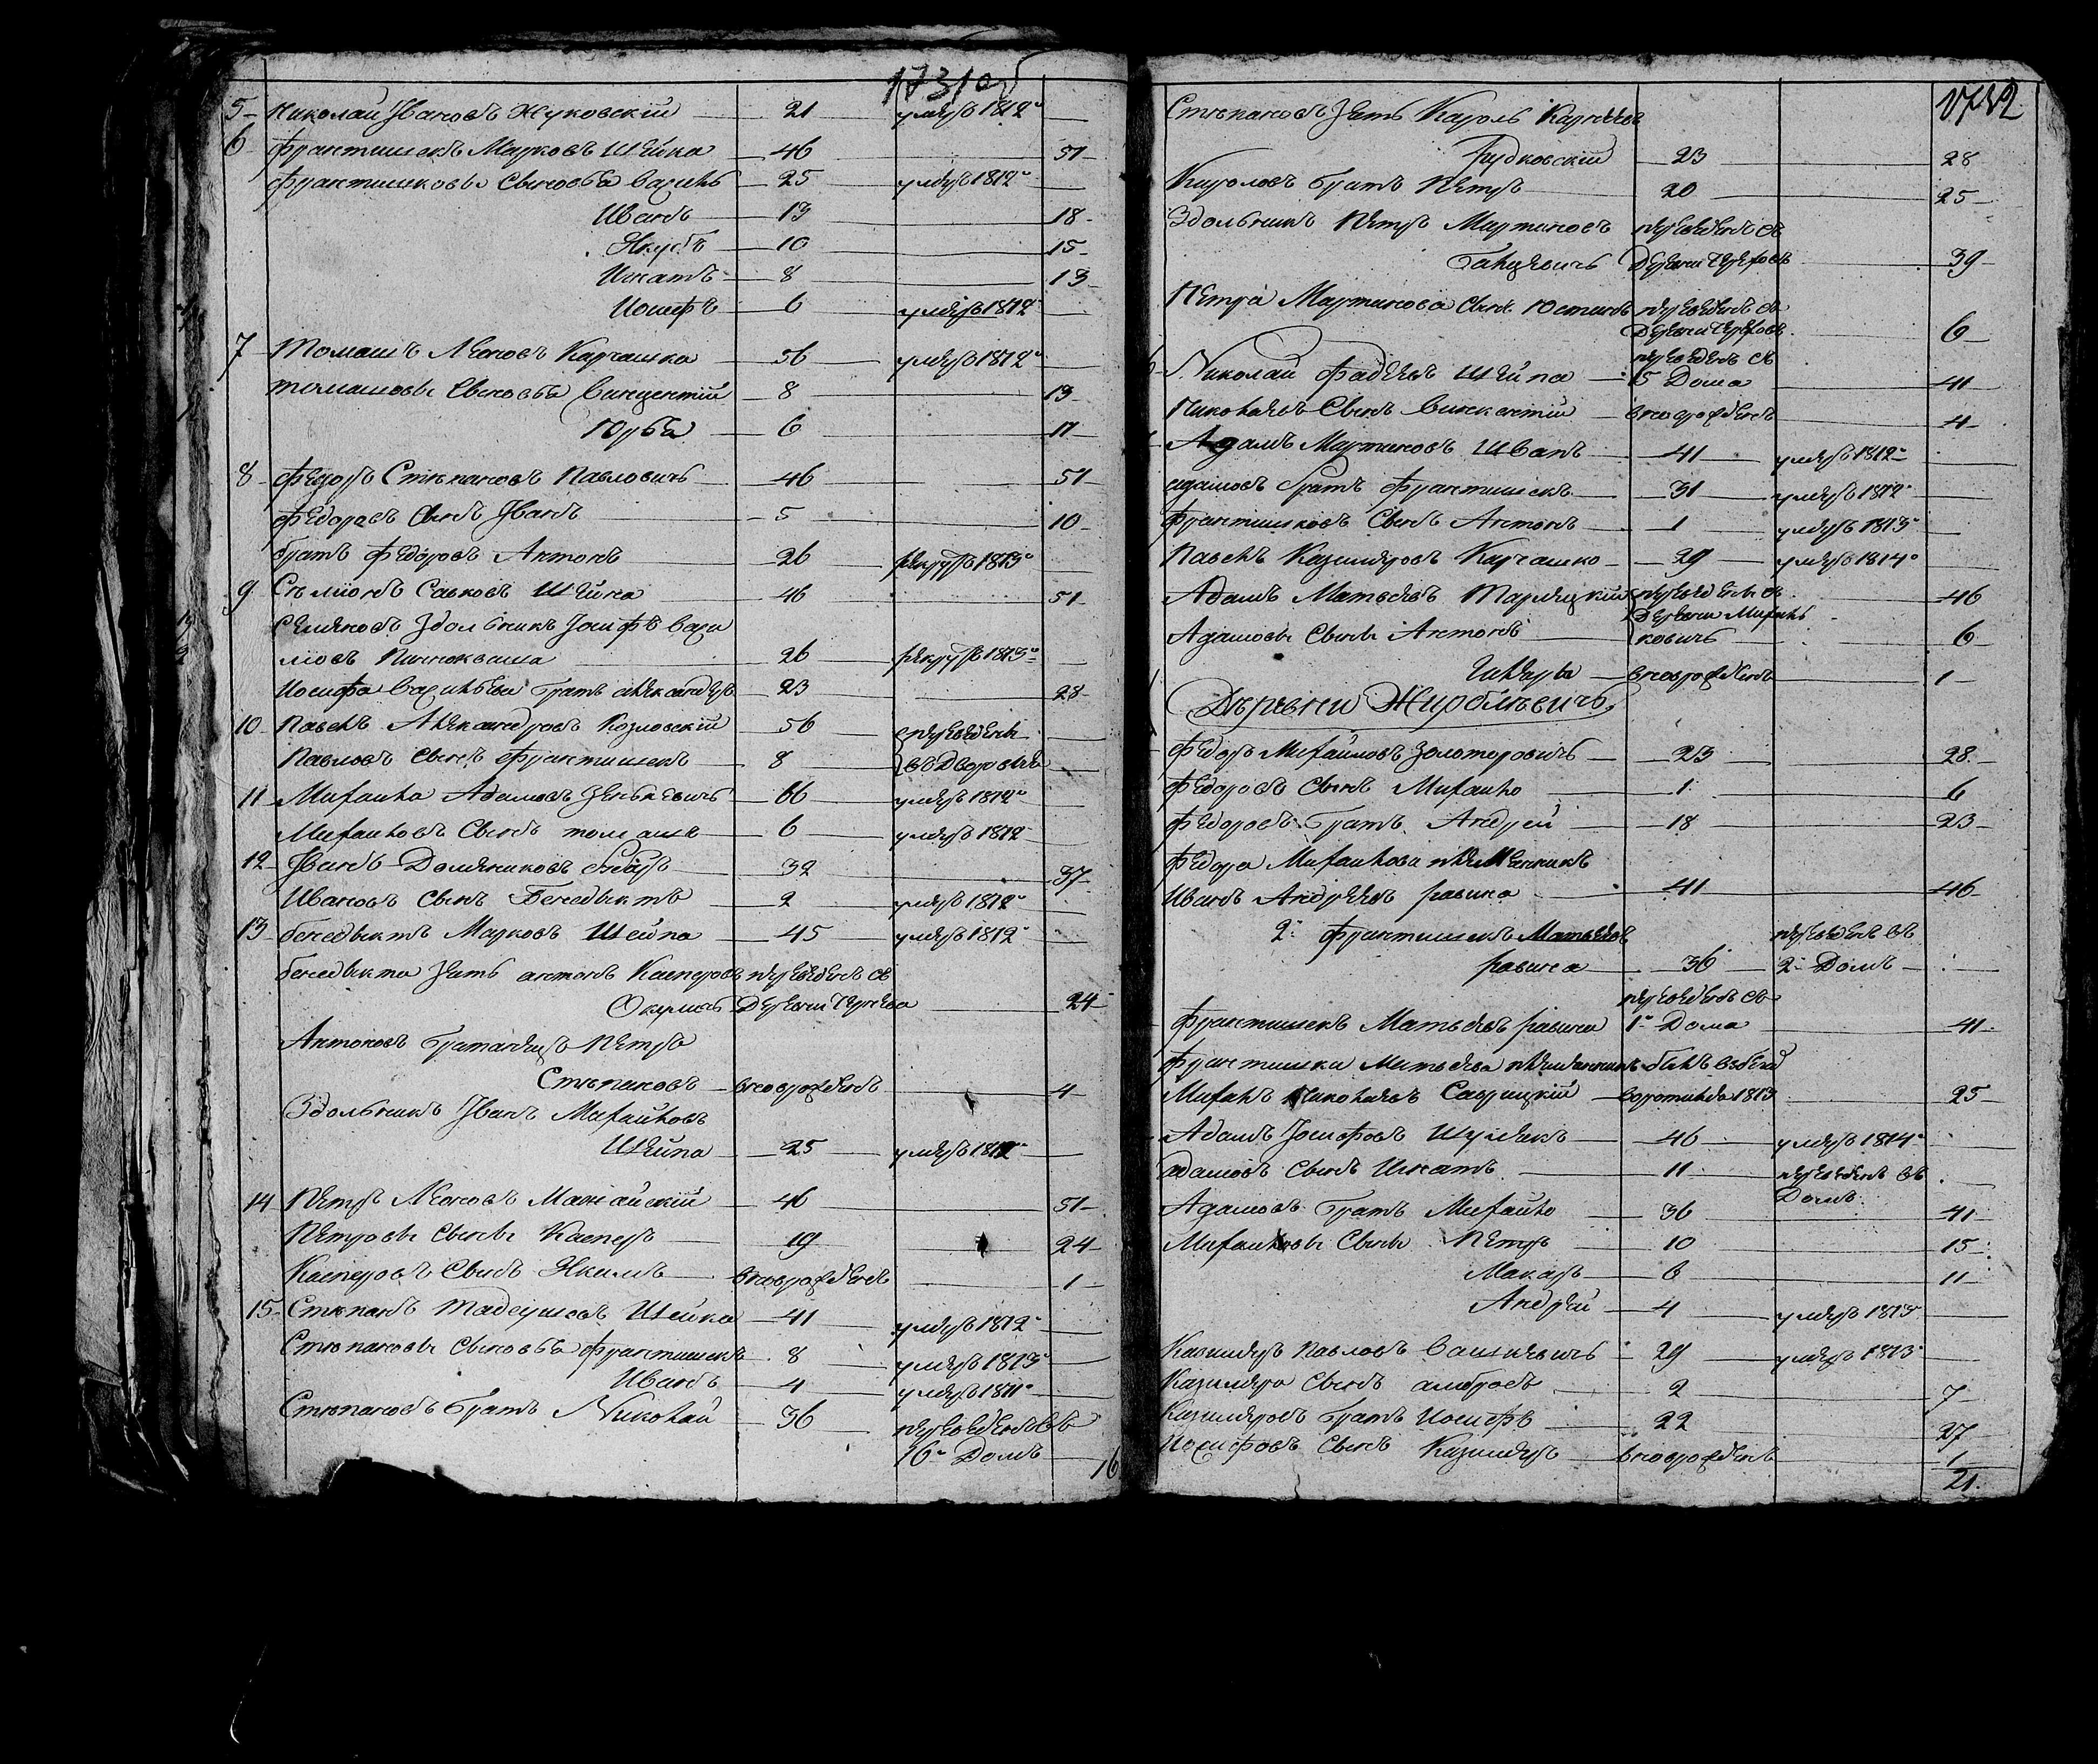 1731 об
5 Николай Ивановъ Жуковскій 21 умеръ 1812
6 Францишекъ Марковъ Шейпа 46 51
Францишковы Сыновья Василь 25 умеръ 1812
Иванъ 13 18
Якубъ 10 15
Игнатъ 8 13
Іосифъ 6 умеръ 1812
7 Томашъ Леоновъ Карчашка 56 умеръ 1812
томашовы Сыновья Винцентій 8 13
Юрья 6 11
8 Федоръ Степановъ Павловичъ 46 51
Федоровъ Сынъ Иванъ 5 10
братъ Федоровъ Антонъ 26 рекрутъ 1813
9 Семіонъ Савковъ Шейпа 46 51
Семеновъ Здольникъ Іосифъ Васи
левъ 26 рекрутъ 1813
Іосифа Васильева братъ александръ 23 28
10 Павелъ Александровъ Козловскій 56 переведены
Павловъ Сынъ Францишекъ 8 въ Дворовые
11 Михайло Адамовъ Зенькевичъ 66 умеръ 1812
Михайловъ Сынъ томашъ 6 умеръ 1812
12 Иванъ Доминиковъ 32 37
Ивановъ Сынъ Бенедыктъ 2 умеръ 1812
13 бенедыктъ Марковъ Шейпа 45 умеръ 1812
бенедыкта Зять антонъ Касперовъ переведенъ съ
Деревни 24
Антоновъ братанецъ Петръ
Степановъ вноврожденъ 4
Здольникъ Иванъ Михайловъ
Шейпа 25 умеръ 1812
14 Петръ Леоновъ 46 51
Петровы Сыны Касперъ 19 24
Касперовъ Сынъ Якимъ вноврожденъ 1
15 Степанъ тадеушовъ Шейпа 41 умеръ 1812
Степановы Сыновья Францишекъ 8 умеръ 1813
Иванъ 4 умеръ 1811
Степановъ братъ Николай 36 переведенъ въ
16 Домъ
16
1732
Степановъ Зять Кароль
Рудковскій 23 28
Кароловъ братъ Петръ 20 25
Здольникъ Петръ Мартиновъ переведенъ съ
Деревни 39
Петра Мартинова Сынъ Юстинъ переведенъ съ
Деревни 6
переведенъ съ
Николай Фадеевъ Шейпа 15 Дома 41
Николаевъ Сынъ Винцентій вноврожденъ 4
Адамъ Мартиновъ Швапъ 41 умеръ 1812
адамовъ братъ Францишекъ 31 умеръ 1812
Францишковъ Сынъ Антонъ 1 умеръ 1813
Павелъ Казимеровъ Карчашко 29 умеръ 1814
Адамъ Матвеевъ переведены съ 46
Деревни
Адамовы Сыны Антонъ 6
вноврожденъ 1
Деревни Жироблевичъ
Федоръ Михайловъ Золоторовичъ 23 28
Федоровъ Сынъ Михайло 1 6
Федоровъ братъ Андрей 18 23
Федора Михайлова племянникъ
Иванъ Андреевъ равина 41 46
2 Францишекъ Матвеевъ переведенъ въ
равина 36 2 Домъ
переведенъ съ
Францишекъ Матвеевъ равина 1 Дома 41
Францишка Матвеева племянникъ былъ въ бегахъ
Михалъ Николаевъ Савицкій воротился 1813 25
Адамъ Іосифовъ Шулякъ 46 умеръ 1814
адамовъ Сынъ Игнатъ 11 переведенъ въ
Домъ
Адамовъ братъ Михайло 36 41
Михайловы Сыны Петръ 10 15
Макаръ 6 11
Андрей 4 умеръ 1813
Казимеръ Павловъ Сашкевичъ 29 умеръ 1813
Казимера Сынъ амбросъ 2 7
Казимеровъ братъ Іосифъ 22 27
Іосифовъ Сынъ Казимеръ вноврожденъ 1
21